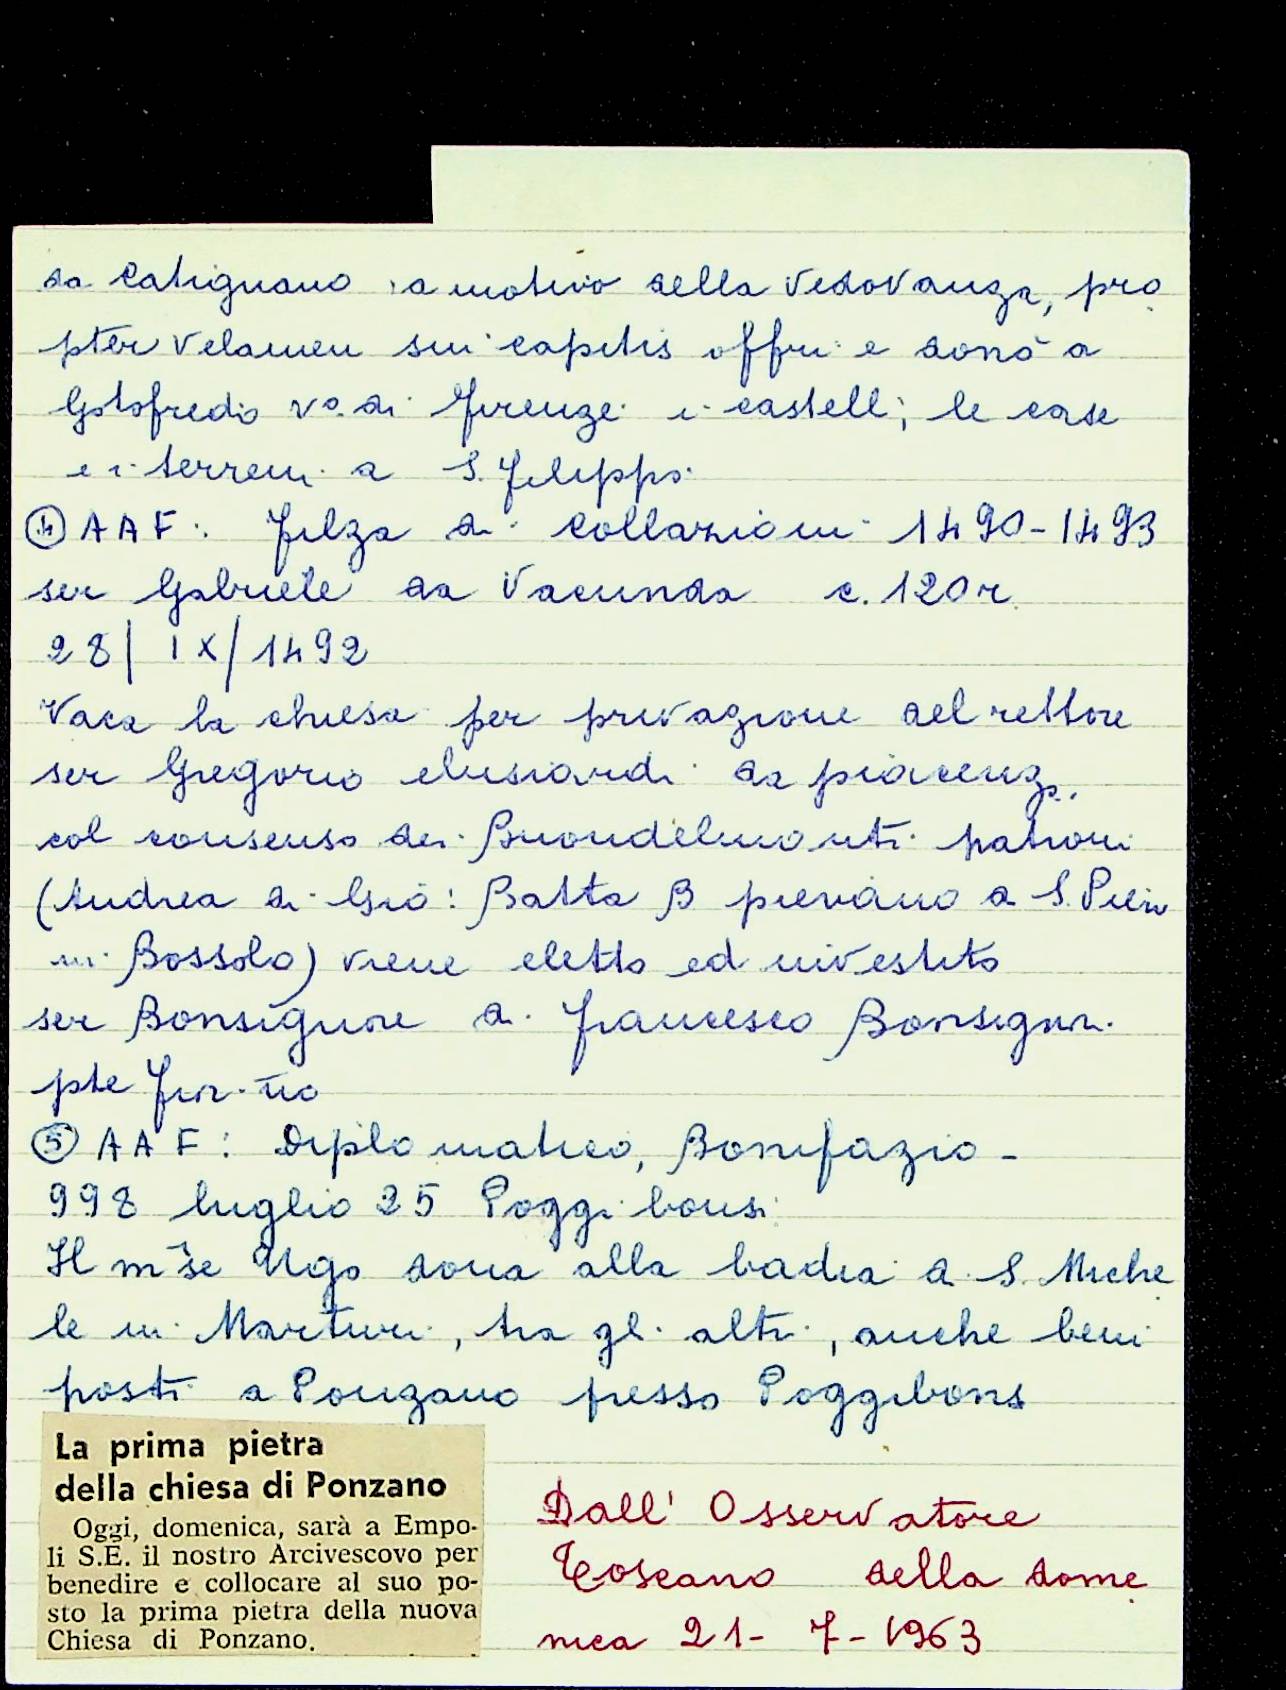 da Catignano a motivo della vedovanza, pro
pter velamen sui capitis offrì e donò a
Gotofredo vo. di Firenze i castelli, le case
e i terreni a S. Filippo.
④ AAF: Filza di Collazioni 1490-1493
ser Gabriele da Vacunda c. 120r
28/IX/1492
Vaca la chiesa per privazione del rettore
ser Gregorio da piacenza,
col consenso dei Buondelmonti patroni
(Andrea di Gio: Batta B pievano a S. Piero
in Bossolo) viene eletto ed investito
ser Bonsignore di Francesco Bonsignori
pte fior.no
⑤ AAF: Diplomatico, Bonifazio -
998 luglio 25 Poggibonsi
Il m̃se Ugo dona alla badia di S. Miche
le in Marturi, tra gli altri, anche beni
posti a Ponzano presso Poggibonsi
La prima pietra
della chiesa di Ponzano
Oggi, domenica, sarà a Empo-
li S.E. il nostro Arcivescovo per
benedire e collocare al suo po-
sto la prima pietra della nuova
Chiesa di Ponzano.
Dall' Osservatore
Toscano della dome
nica 21-7-1963